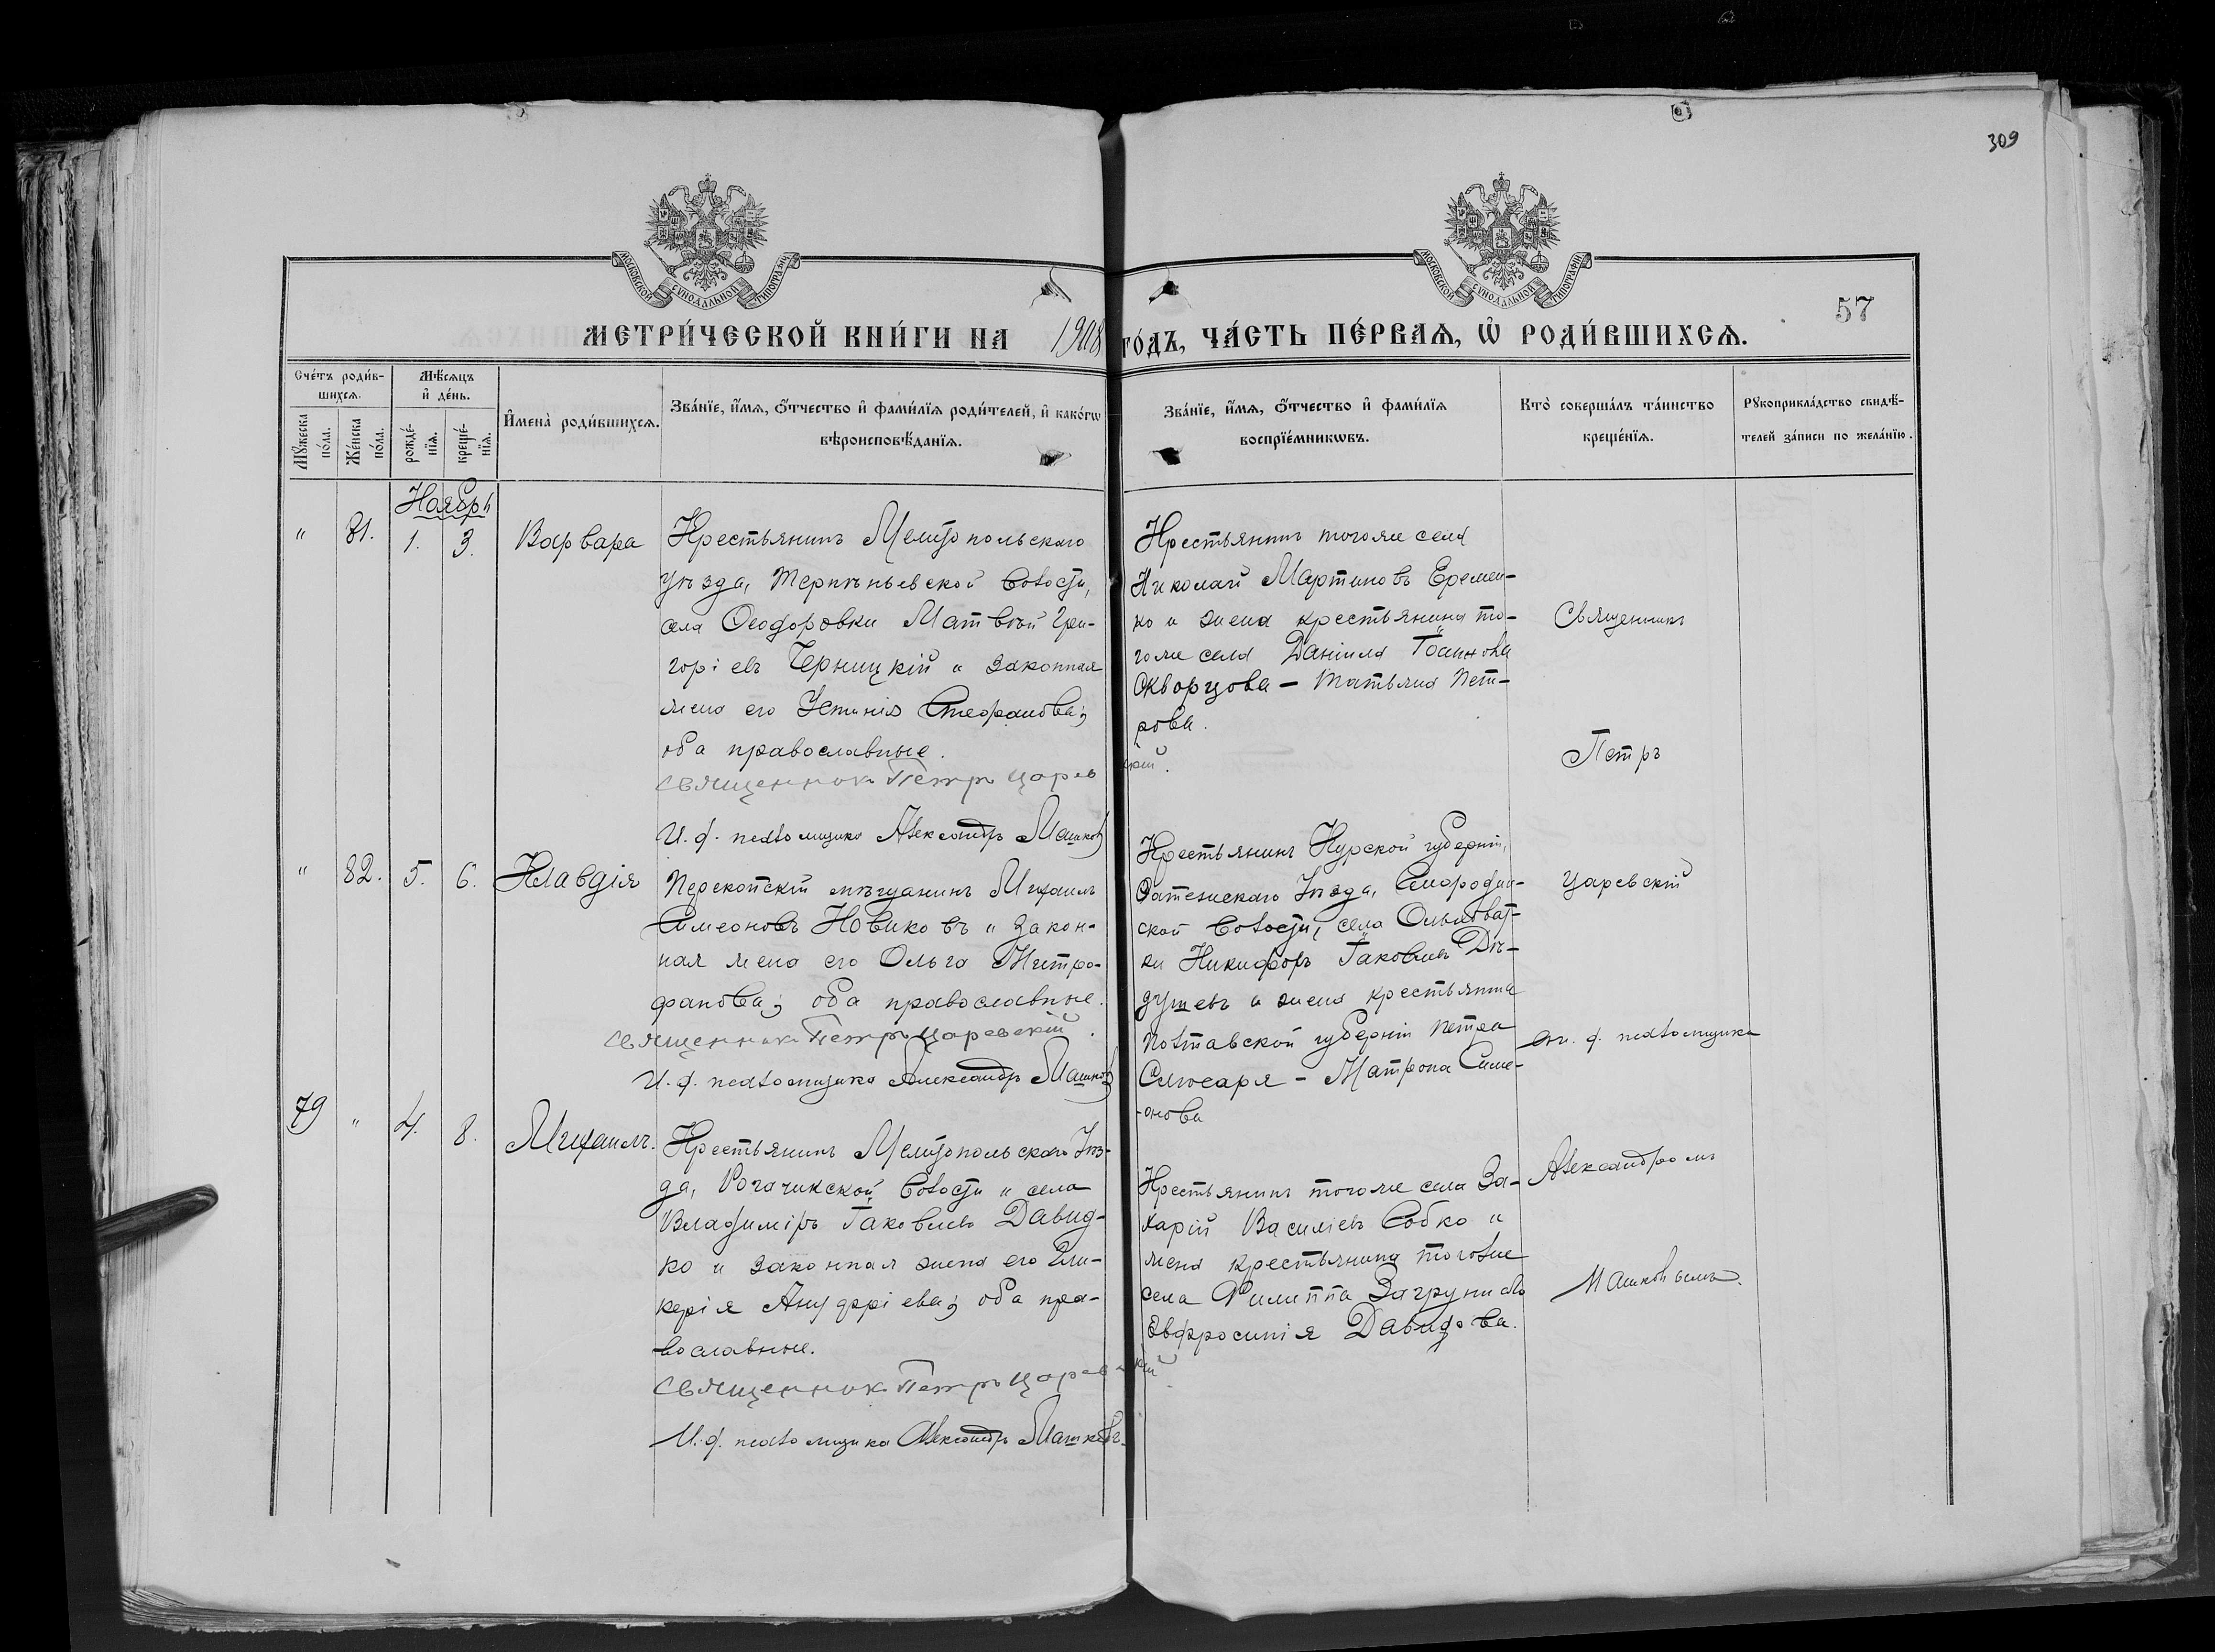 309
МОСКОВСКОЙ СѴНОДАЛЬНОЙ ТИПОГРАФІИ
МОСКОВСКОЙ СѴНОДАЛЬНОЙ ТИПОГРАФІИ
57
МЕТРИ́ЧЕСКОЙ КНИ́ГИ НА 1908 ГО́ДЪ, ЧА́СТЬ ПЕ́РВАѦ, Ѽ РОДИ́ВШИХСѦ.
Сче́тъ роди́в-
шихсѧ.
Мꙋ́жеска по́ла.
Же́нска по́ла.
Мѣ́сѧцъ
и҆ де́нь.
рожде́-
нїѧ.
креще́-
нїѧ.
И҆мена̀ роди́вшихсѧ.
Зва́нїе, и҆́мѧ, ѻ҆́тчество и҆ фами́лїѧ роди́телей, и҆ како́гѡ
вѣроисповѣ́данїѧ.
Зва́нїе, и҆́мѧ, ѻ҆́тчество и҆ фами́лїѧ
воспрїе́мникѡвъ.
Кто̀ соверша́лъ та́инство
креще́нїѧ.
Рꙋкоприкла́дство свидѣ́-
телей за́писи по жела́нїю.
Ноябрь
" 81. 1. 3. Варвара
Крестьянинъ Мелитопольскаго
уѣзда, Терпѣньевской волости,
села Ѳеодоровки Матвѣй Гри-
горіевъ Черницкій и законная
жена его Устинія Стефанова;
оба православные.
Священникъ Петръ Царевскій.
И. д. псаломщика Александръ Машковъ
Крестьянинъ тогоже села
Николай Мартиновъ Еремен-
ко и жена крестьянина то-
гоже села Даніила Іоаннова
Скворцова – Татьяна Пет-
рова.
" 82. 5. 6. Клавдія
Перекопскій мѣщанинъ Михаилъ
Симеоновъ Новиковъ и закон-
ная жена его Ольга Митро-
фанова; оба православные.
Священникъ Петръ Царевскій.
И. д. псаломщика Александръ Машковъ
Крестьянинъ Курской губерніи,
Фатежскаго уѣзда,
ской волости, села Ольховат-
ки Никифоръ Іаковлевъ Дѣ-
душевъ и жена крестьянина
Полтавской губерніи Петра
Слюсаря – Матрона Симе-
-онова
79 " 4. 8. Михаилъ.
Крестьянинъ Мелитопольскаго уѣз-
да, Рогачикской волости и села
Владиміръ Іаковлевъ Давид-
ко и законная жена его Гли-
керія Ануфріева; оба пра-
вославные.
Священникъ Петръ Царевскій
И. д. псаломщика Александръ Машковъ.
Крестьянинъ тогоже села За-
харій Василіевъ Собко и
жена крестьянина тогоже
села Филиппа
Евфросинія Давидова.
Священникъ
Петръ
Царевскій
съ и. д. псаломщика
Александромъ
Машковымъ.